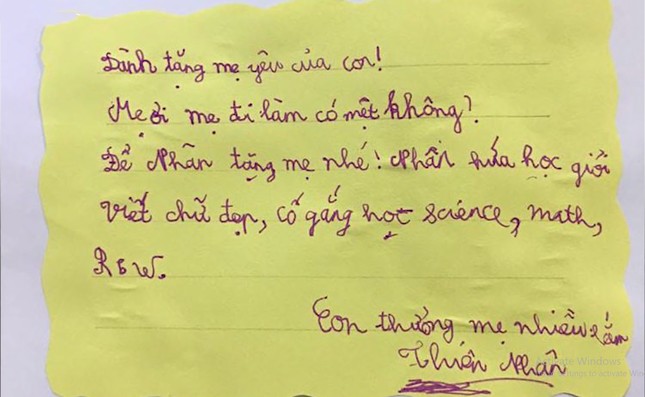 Dành tặng mẹ yêu của con!
Mẹ ơi mẹ đi làm có mệt không?
Để Nhân tặng mẹ nhé! Nhân hứa học giỏi
viết chữ đẹp, cố gắng học science, math,
R & W.
Con thương mẹ nhiều lắm
Thiện Nhân
Activate Windows
Go to Settings to activate Win